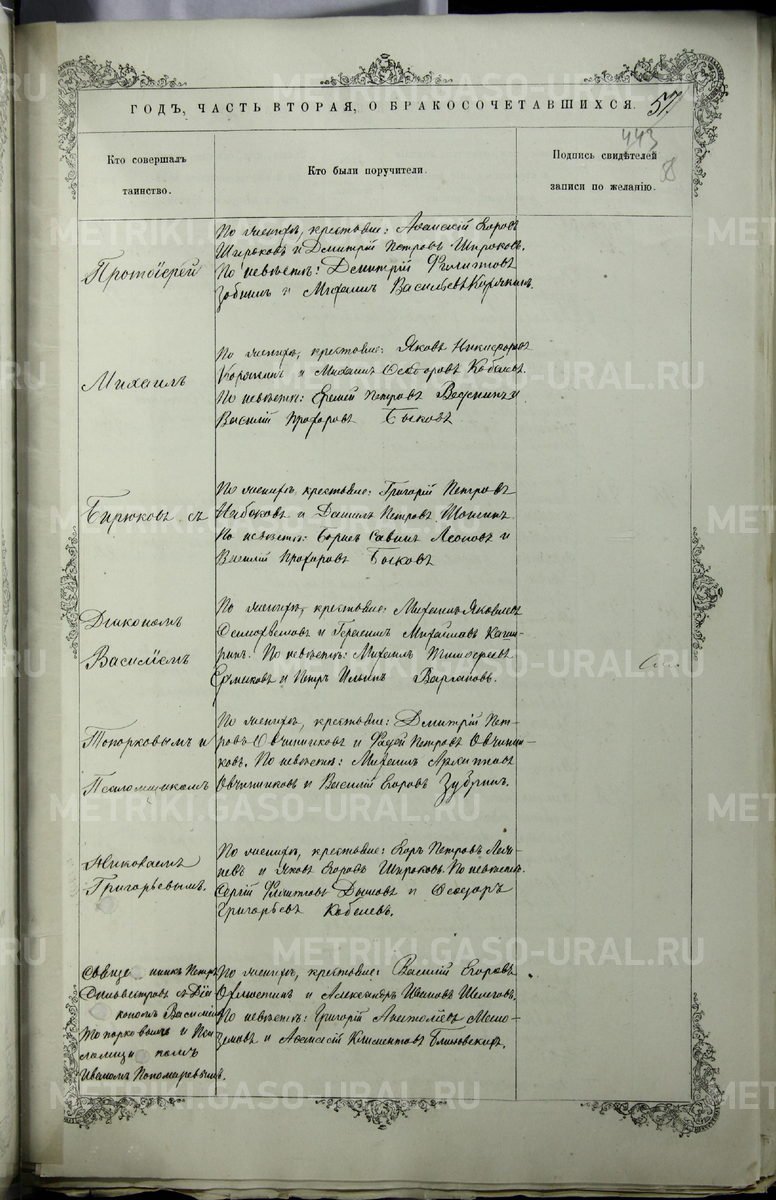 ГОДЪ, ЧАСТЬ ВТОРАЯ, О БРАКОСОЧЕТАВШИХСЯ.
57.
443
58
Кто совершалъ
таинство.
Кто были поручители.
Подпись свидѣтелей
записи по желанію.
Протоіерей
По женихѣ, крестьяне: Аѳанасій Егоровъ
и Дмитрій Петровъ Широковъ.
По невѣстѣ: Дмитрій Филиповъ
Зобнинъ и Михаилъ Васильевъ
Михаилъ
По женихѣ, крестьяне: Яковъ Никифоровъ
и Михаилъ Ѳеодоровъ
По невѣстѣ: Еремей Петровъ и
Василій Прохоровъ Быковъ
Бирюковъ съ
По женихѣ, крестьяне: Григорій Петровъ
Набоковъ и Даніилъ Петровъ
По невѣстѣ: Борисъ Савинъ Леоновъ и
Василій Прохоровъ Быковъ
Діакономъ
Василіемъ
По женихѣ, крестьяне: Михаилъ Яковлевъ
и Герасимъ Михайловъ
По невѣстѣ: Михаилъ Тимоѳеевъ
Ермаковъ и Петръ Ильинъ Варлаковъ.
Топорковымъ и
Псаломщикомъ
По женихѣ, крестьяне: Дмитрій Пет-
ровъ Овчинниковъ и Фадей Петровъ Овчинни-
ковъ. По невѣстѣ: Михаилъ Архиповъ
Овчинниковъ и Василій Егоровъ
Николаемъ
Григорьевымъ.
По женихѣ, крестьяне: Егоръ Петровъ
и Яковъ Егоровъ Широковъ. По невѣстѣ:
Сергій Филиповъ и Ѳеодоръ
Григорьевъ Кобелевъ.
Священникъ Петръ
Сильвестровъ съ Діа
кономъ Василіемъ
Топорковымъ и Пса
ломщикомъ
Иваномъ Пономаревымъ.
По женихѣ, крестьяне: Василій Егоровъ
и Александръ Ивановъ Шелеговъ.
По невѣстѣ: Григорій Анатоліевъ
и Аѳанасій Климентовъ
METRIKI.GASO-URAL.RU